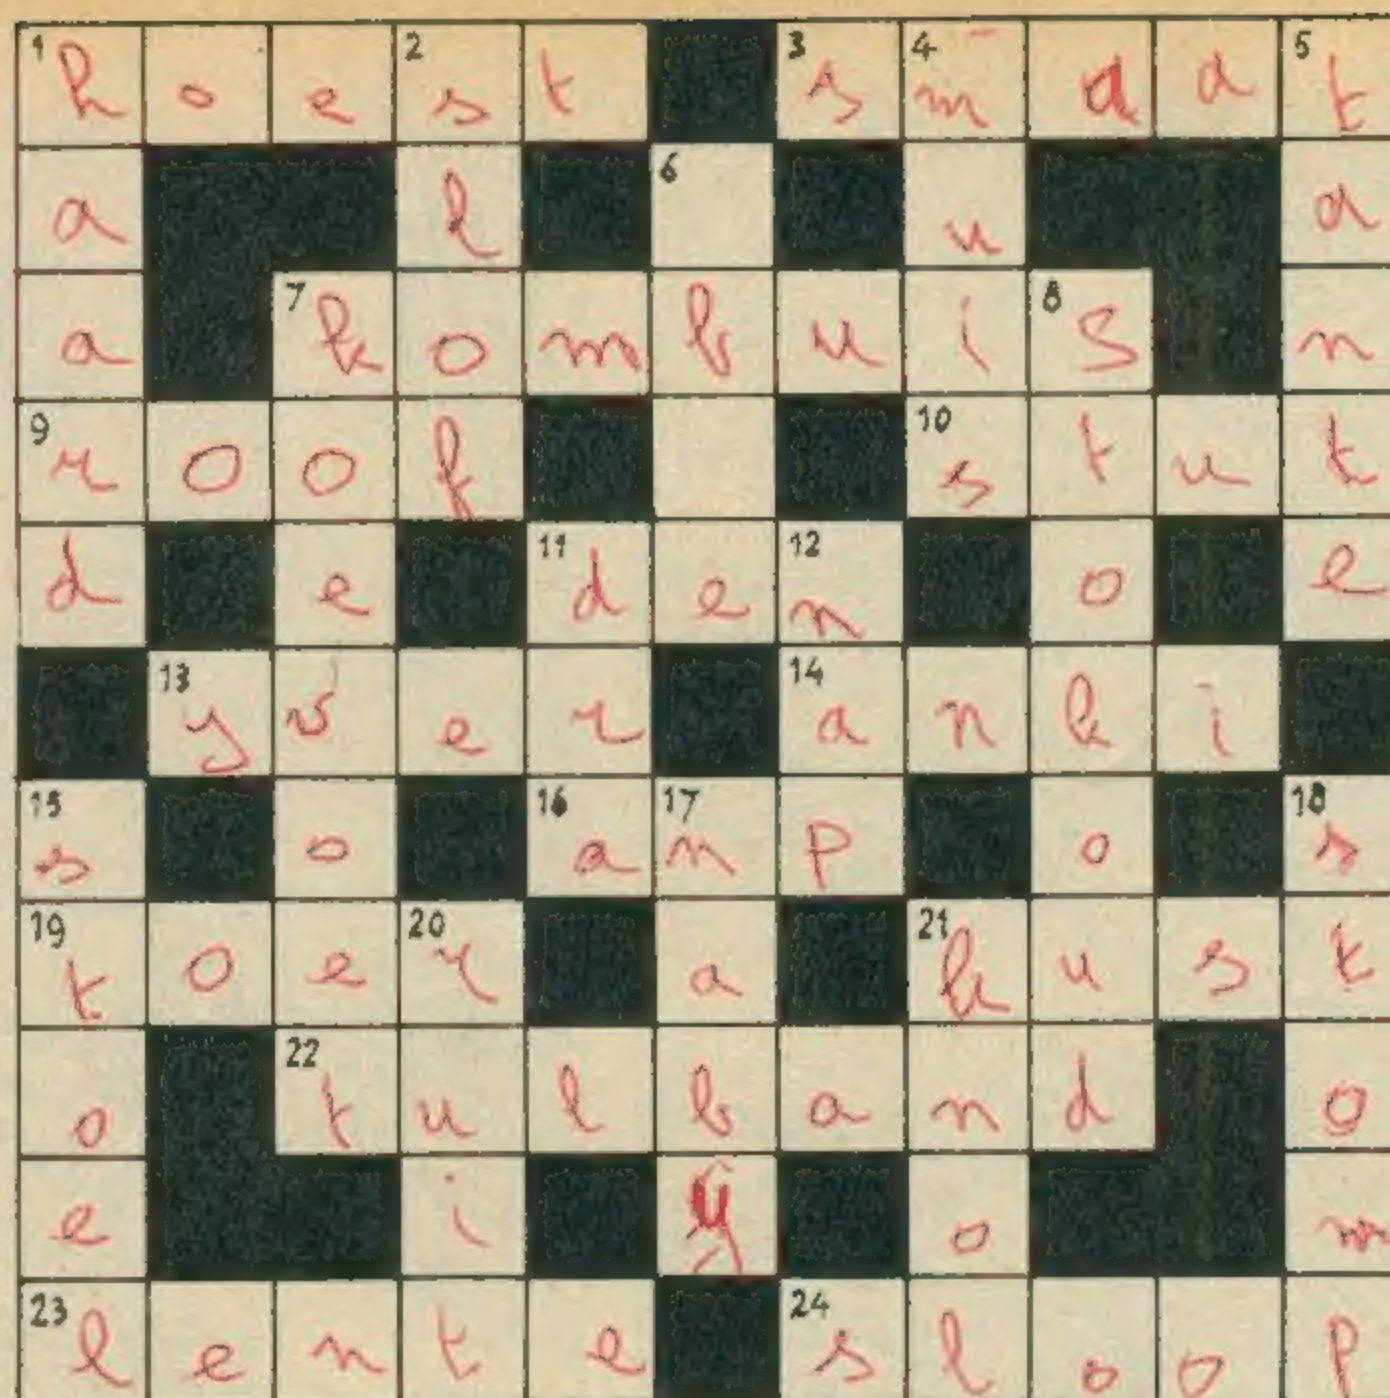 1 h o e 2 s t 3 s 4 m a a 5 t
a l 6 u a
a 7 k o m b u i 8 s n
9 r o o f 10 s t u t
d e 11 d e 12 n o e
13 y v e r 14 a n k i
15 s o 16 a 17 n p o 18 s
19 t o e 20 r a 21 k u s t
o 22 t u l b a n d o
e i y o m
23 l e n t e 24 s l o o p